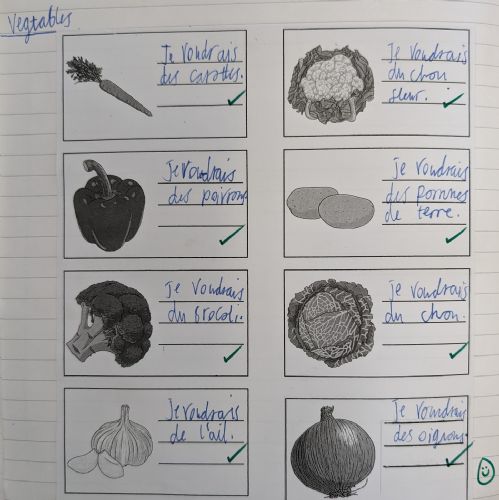 Vegtables
Je voudrais
des carottes.
Je voudrais
du chou
fleur.
Je voudrais
des poivrons
Je voudrais
des pommes
de terre.
Je voudrais
du brocoli.
Je voudrais
du chou.
Je voudrais
de l'ail.
Je voudrais
des oignons.